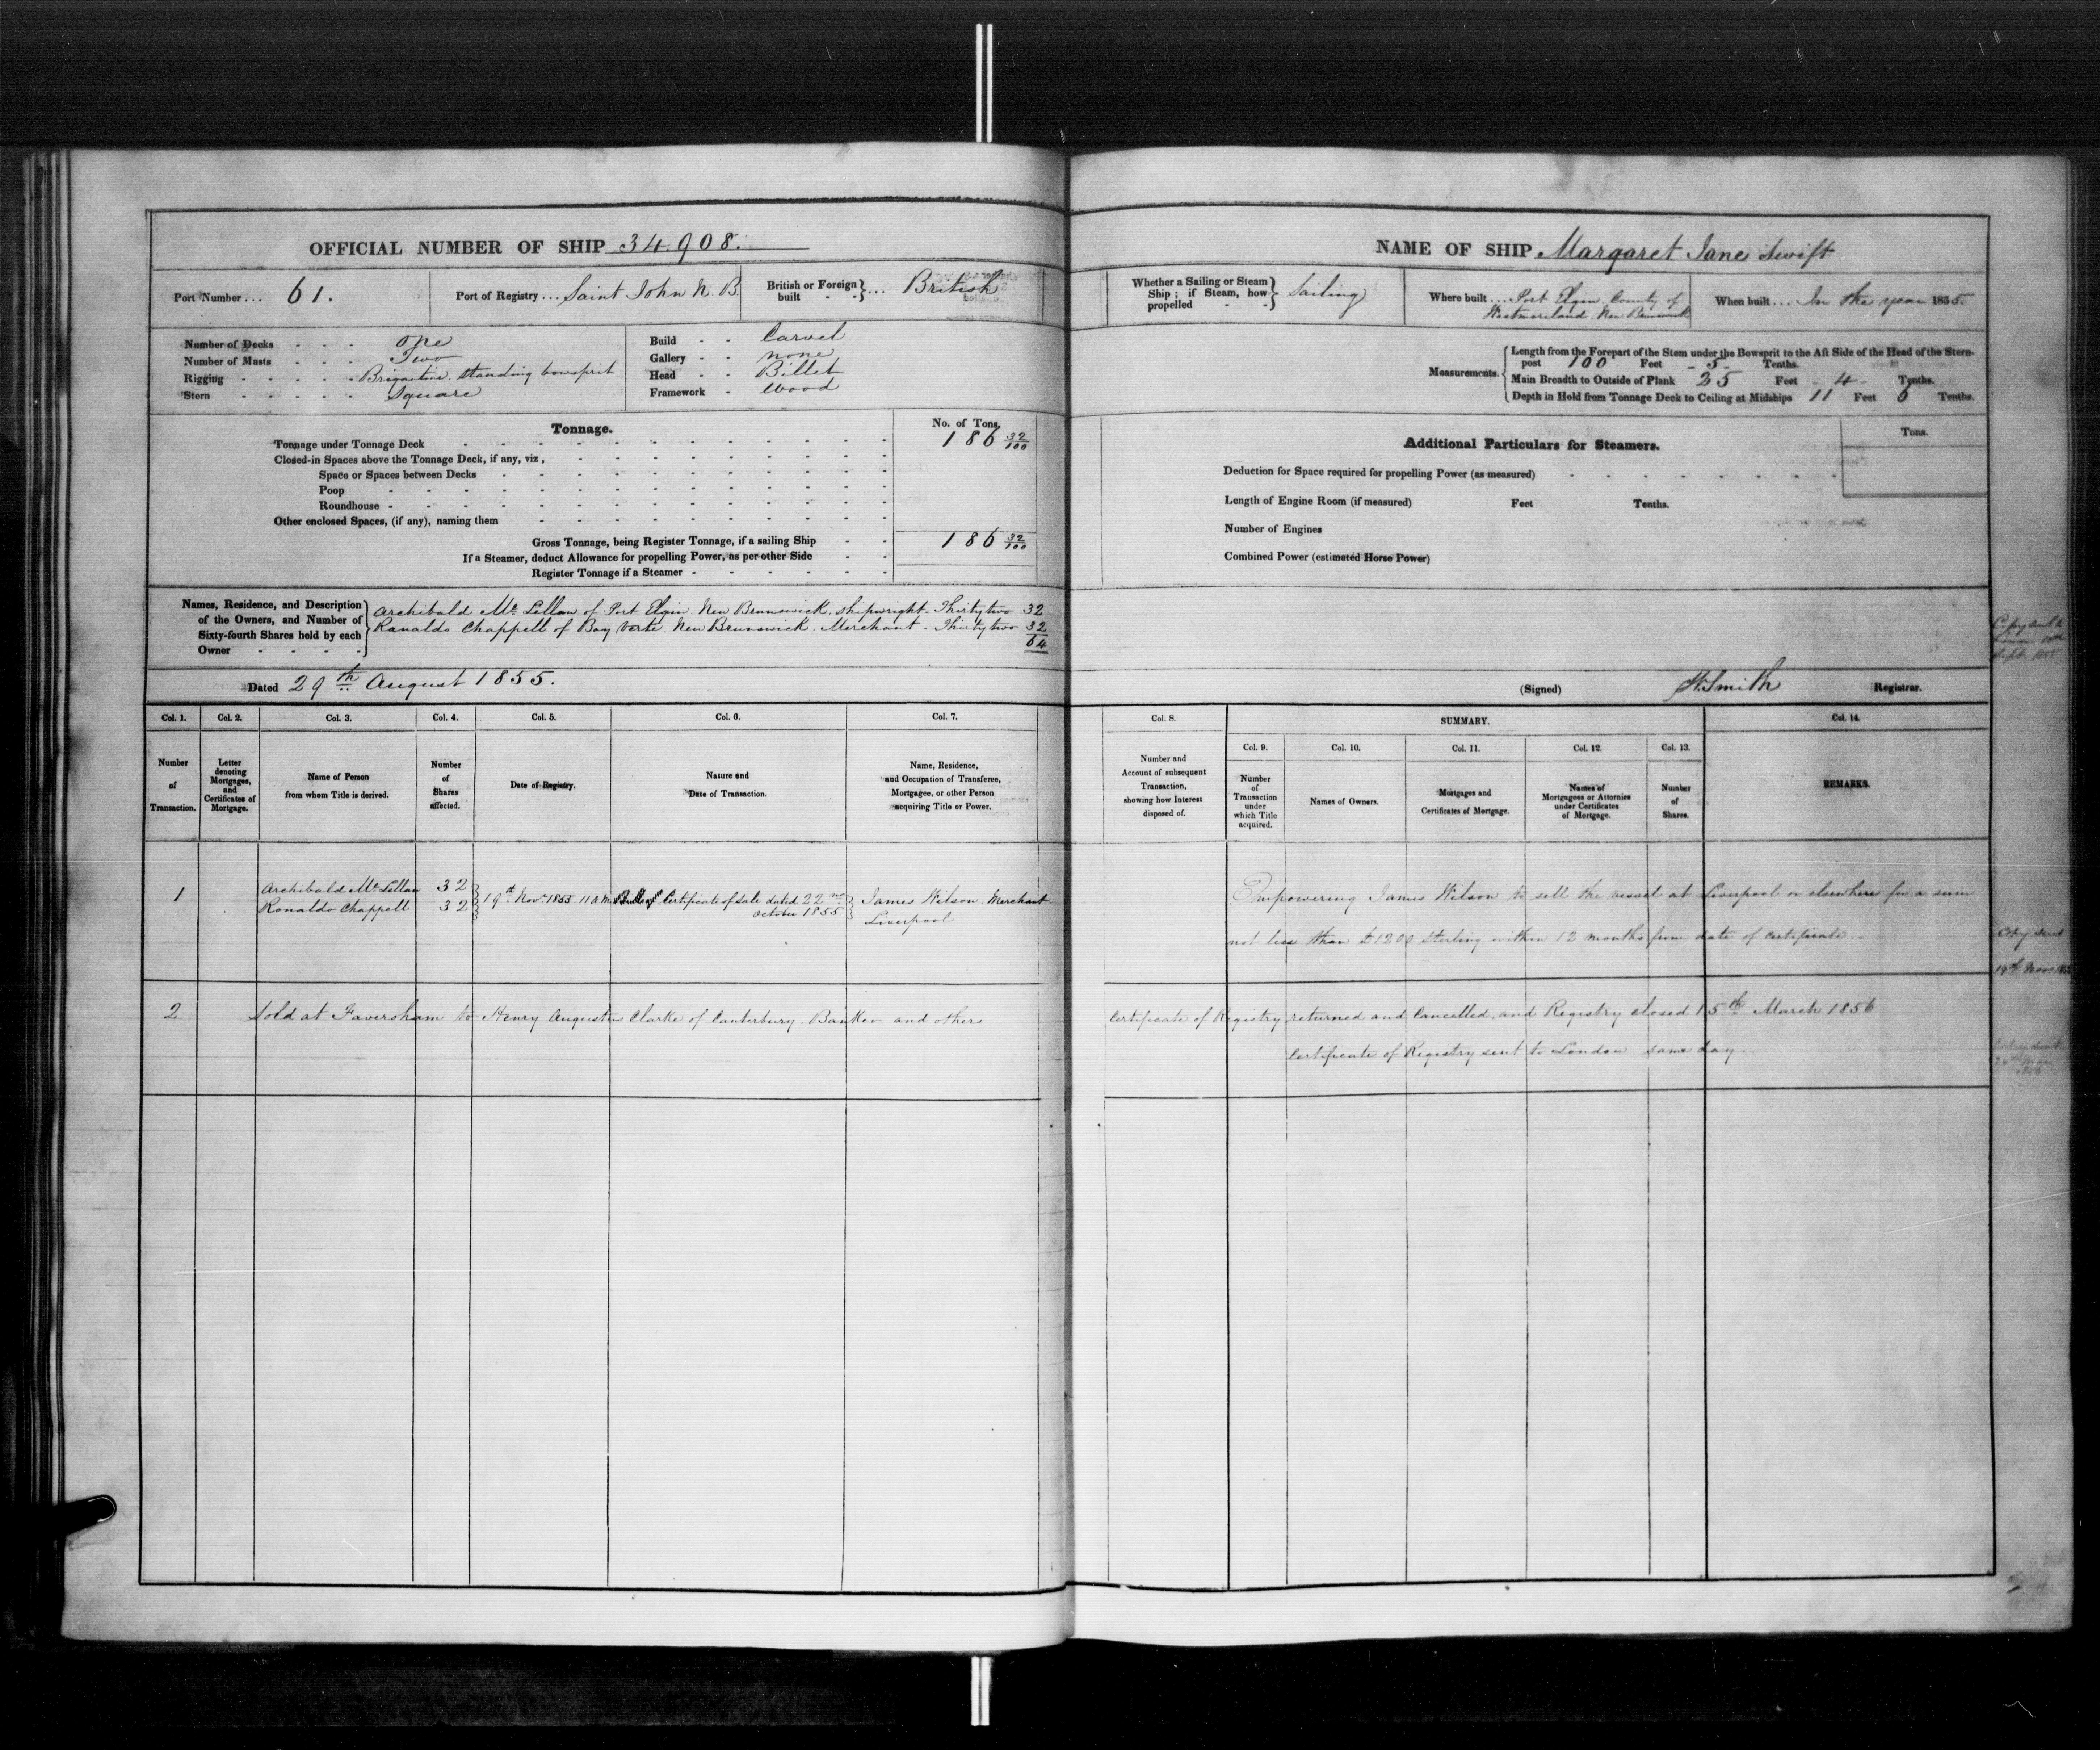 OFFICIAL NUMBER OF SHIP 34.908.
Port Number ... 61.
Port of Registry ... Saint John N. B.
British or Foreign built - - } ... British
Number of Decks - - - One
Number of Masts - - - Two
Rigging - - - - - Brigantine. standing bowsprit
Stern - - - - - Square
Build - - Carvel
Gallery - - none
Head - - Billet
Framework - Wood
Tonnage.
No. of Tons.
Tonnage under Tonnage Deck 186 32/100
Closed-in Spaces above the Tonnage Deck, if any, viz,
Space or Spaces between Decks
Poop
Roundhouse
Other enclosed Spaces, (if any), naming them
Gross Tonnage, being Register Tonnage, if a sailing Ship 186 32/100
If a Steamer, deduct Allowance for propelling Power, as per other Side
Register Tonnage if a Steamer
Names, Residence, and Description of the Owners, and Number of Sixty-fourth Shares held by each Owner
Archibald Mc Lellan of Port Elgin. New Brunswick. shipwright - Thirty two 32
Ranaldo Chappell of Bay Verte. New Brunswick. Merchant - Thirty two 32
64
Dated 29th August 1855.
Col. 1. Number of Transaction.
Col. 2. Letter denoting Mortgages, and Certificates of Mortgage.
Col. 3. Name of Person from whom Title is derived.
Col. 4. Number of Shares affected.
Col. 5. Date of Registry.
Col. 6. Nature and Date of Transaction.
Col. 7. Name, Residence, and Occupation of Transferee, Mortgagee, or other Person acquiring Title or Power.
1 Archibald Mc Lellan 32
Ronaldo Chappell 32
19th Novr 1855 11 A.M.
Certificate of Sale dated 22nd
October 1855
James Wilson. Merchant
Liverpool
2 Sold at Faversham to Henry Augustus Clarke of Canterbury. Banker and others
NAME OF SHIP Margaret Jane Swift
Whether a Sailing or Steam Ship; if Steam, how propelled - - } Sailing
Where built ... Port Elgin. County of
Westmoreland. New Brunswick
When built ... In the year 1855.
Measurements.
Length from the Forepart of the Stem under the Bowsprit to the Aft Side of the Head of the Stern-
post 100 Feet - 5 - Tenths.
Main Breadth to Outside of Plank 25 Feet - 4 - Tenths.
Depth in Hold from Tonnage Deck to Ceiling at Midships 11 Feet 6 Tenths.
Additional Particulars for Steamers.
Tons.
Deduction for Space required for propelling Power (as measured)
Length of Engine Room (if measured) Feet Tenths.
Number of Engines
Combined Power (estimated Horse Power)
Copy sent to
(Signed) W. Smith Registrar.
Col. 8. Number and Account of subsequent Transaction, showing how Interest disposed of.
SUMMARY.
Col. 9. Number of Transaction under which Title acquired.
Col. 10. Names of Owners.
Col. 11. Mortgages and Certificates of Mortgage.
Col. 12. Names of Mortgagees or Attornies under Certificates of Mortgage.
Col. 13. Number of Shares.
Col. 14. REMARKS.
Empowering James Wilson to sell the vessel at Liverpool or elsewhere for a sum
not less than £1200 sterling within 12 months from date of certificate.
Copy sent
19th Novr 1855
Certificate of Registry returned and Cancelled. and Registry closed 15th March 1856
Certificate of Registry sent to London same day
Copy sent